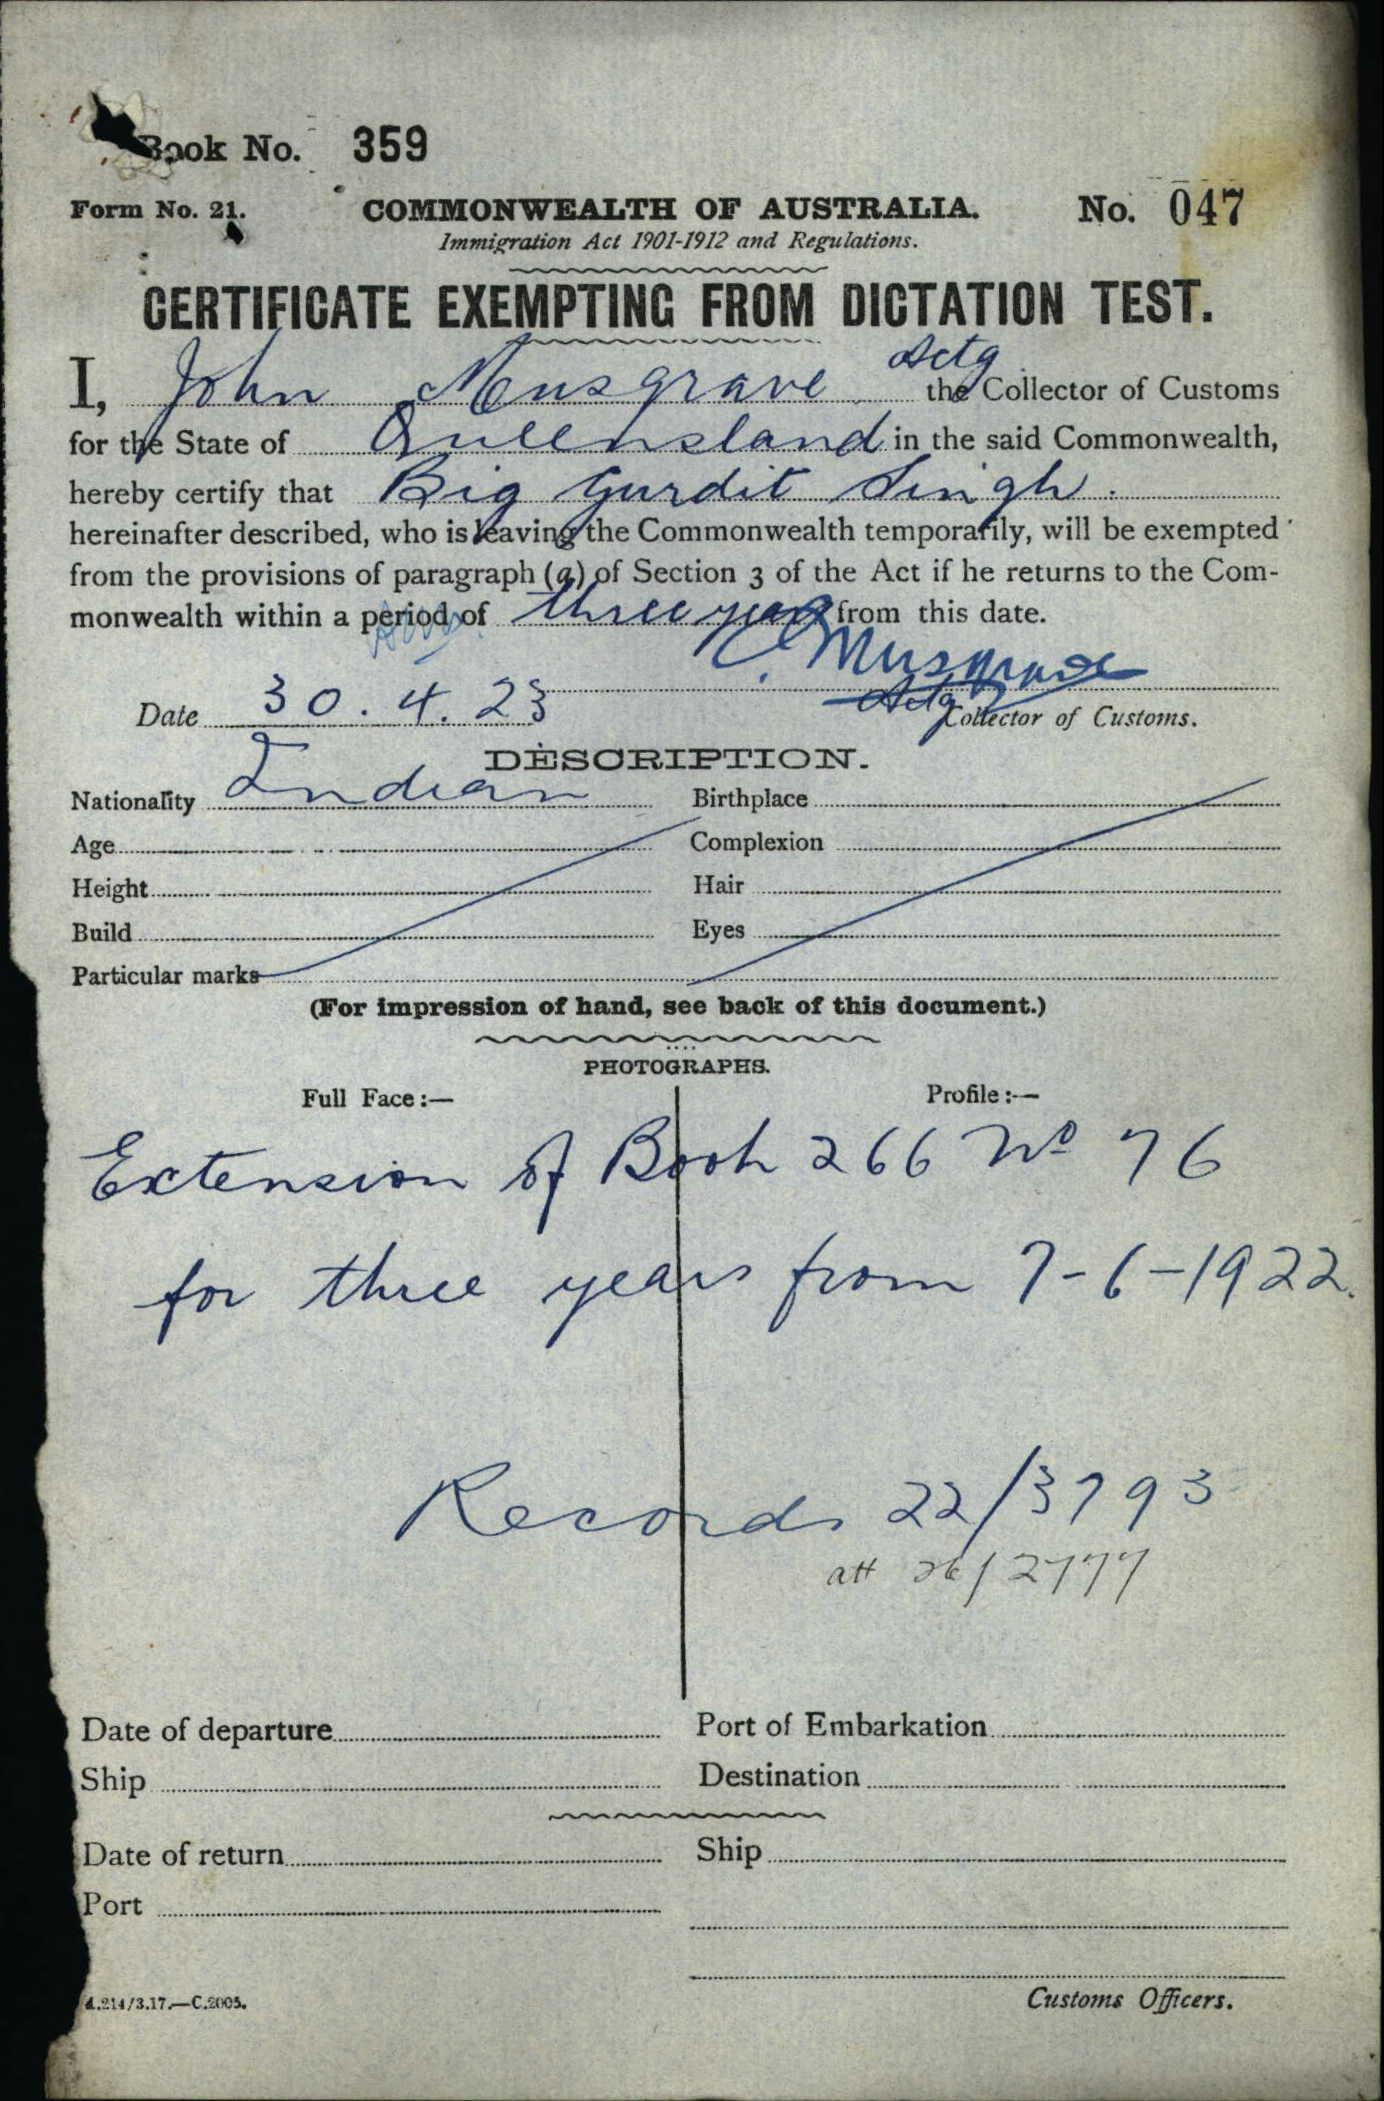 Book No. 359
Form No. 21. COMMONWEALTH OF AUSTRALIA. No. 047
Immigration Act 1901-1912 and Regulations.
CERTIFICATE EXEMPTING FROM DICTATION TEST.
Actg
I, John Musgrave the Collector of Customs
for the State of Queensland in the said Commonwealth,
hereby certify that Big Gurdit Singh.
hereinafter described, who is leaving the Commonwealth temporarily, will be exempted
from the provisions of paragraph (a) of Section 3 of the Act if he returns to the Com-
monwealth within a period of three years from this date.
Musgrave
Date 30.4.23 Actg Collector of Customs.
DESCRIPTION.
Nationality Indian Birthplace
Age Complexion
Height Hair
Build Eyes
Particular marks
(For impression of hand, see back of this document.)
PHOTOGRAPHS.
Full Face:— Profile:—
Extension of Book 266 No 76
for three years from 7-6-1922.
Records 22/3793
att 26/2777
Date of departure Port of Embarkation
Ship Destination
Date of return Ship
Port
A.214/3.17.—C.2005. Customs Officers.